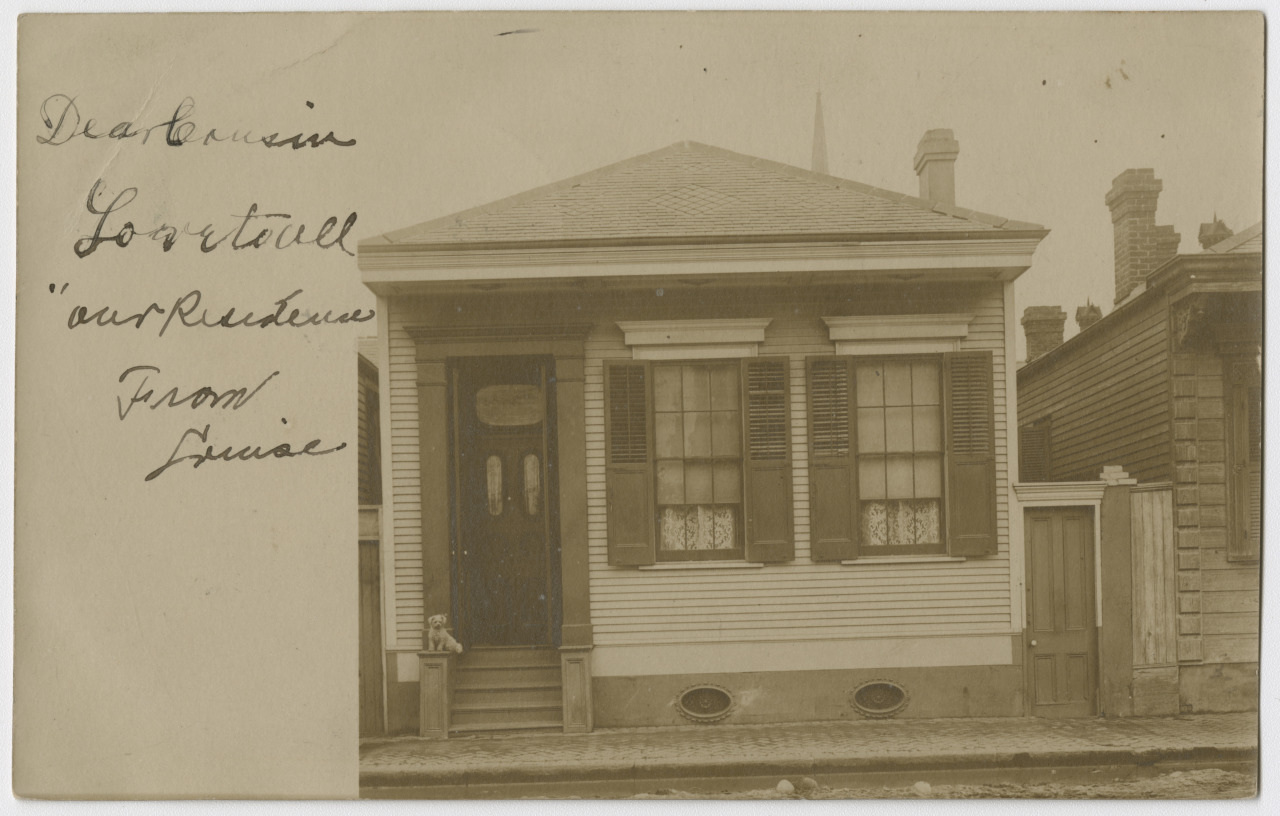 Dear Cousin
Love to all
"our Residence
From
Louise